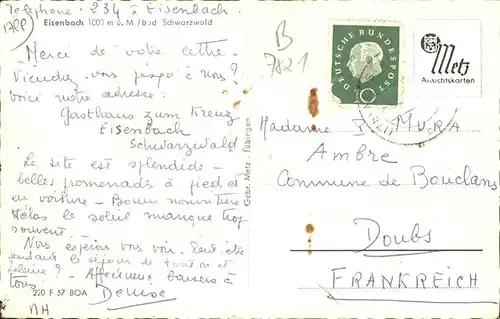 Telephone : 234 : Eisenbach
17RP
Eisenbach 1000 m ü. M /bad Schwarzwald
Merci de votre lettre.
Viendrez-vous jusqu'à nous?
voici notre adresse:
Gasthaus zum Kreuz
Eisenbach
Schwarzwald
Le site est splendide -
belles promenades à pied et
en voiture - Bonne nourriture
Hélas le soleil manque trop
souvent.
Nous espérons vous voir. Peut-être
pendant le séjour de tonton et
? - Affectueux baisers à
tous
Denise
220 F 57 BOA
MH
Gebr. Metz · Tübingen
B
7821
DEUTSCHE BUNDESPOST
10
Metz
Ansichtskarten
Madame MURA
Ambre
Commune de Bouclans
Doubs
FRANKREICH